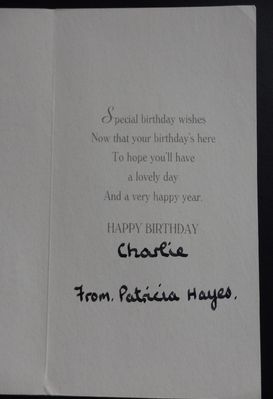 Special birthday wishes
Now that your birthday's here
To hope you'll have
a lovely day
And a very happy year.
HAPPY BIRTHDAY
Charlie
From. Patricia Hayes.